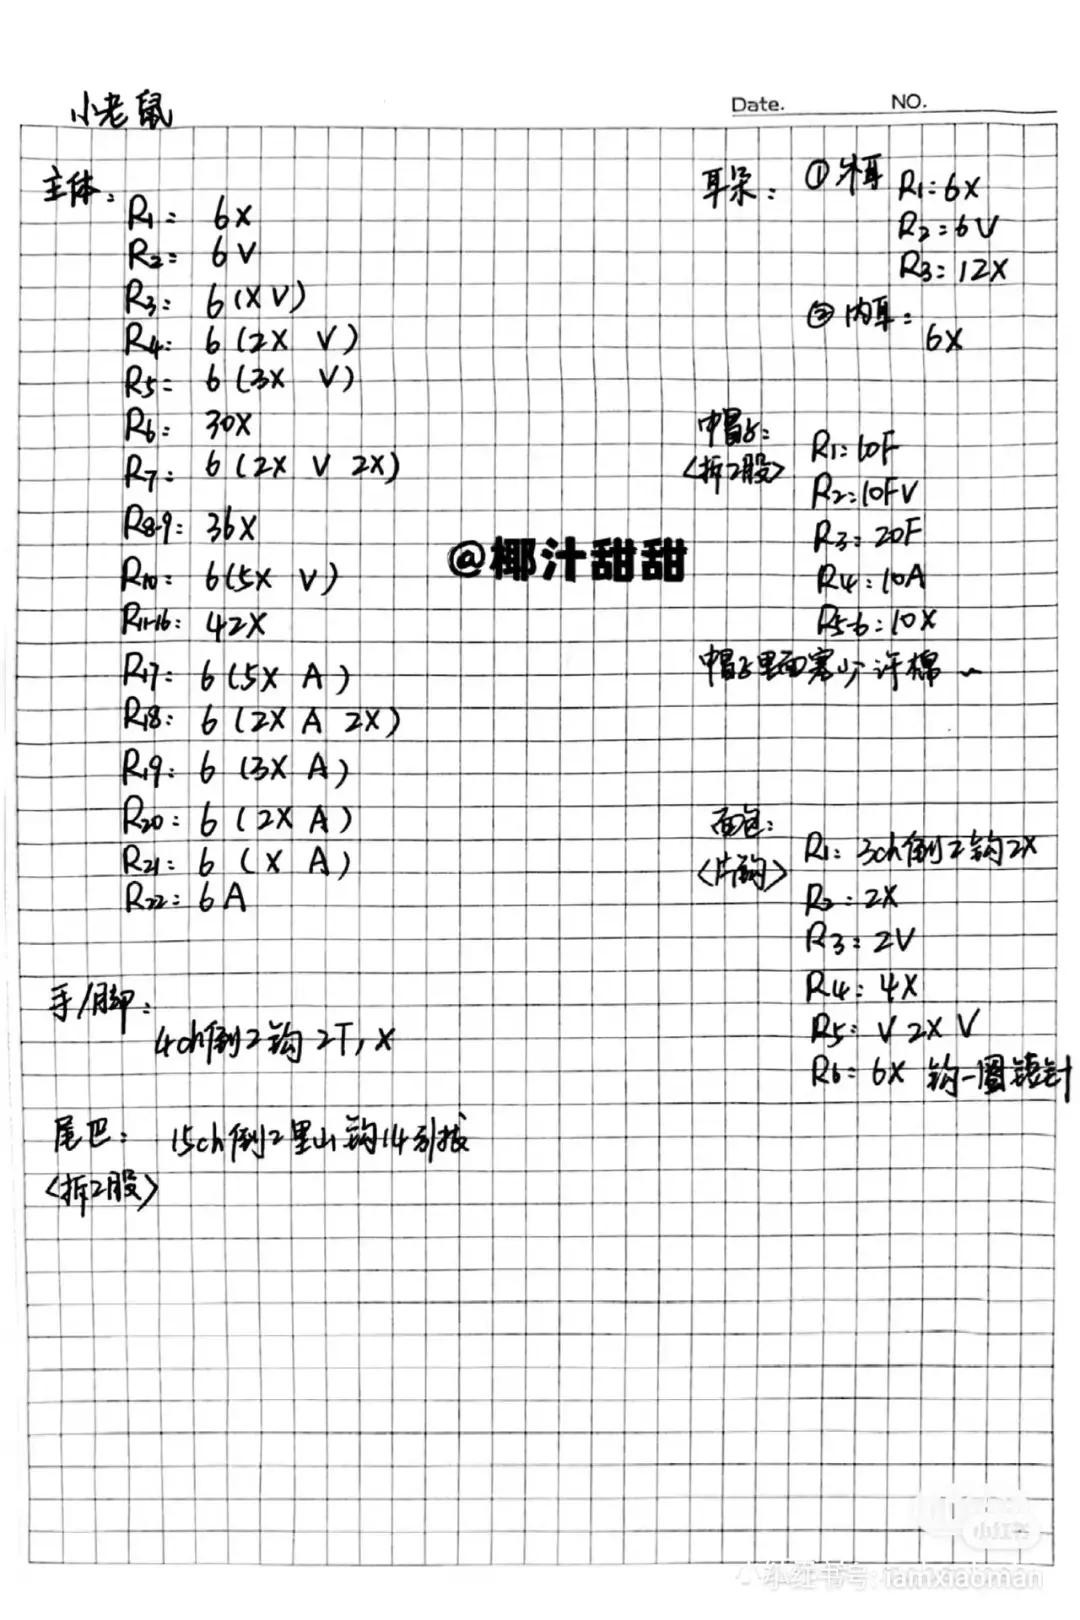 小老鼠
Date.
NO.
主体：
R1：6X
R2：6V
R3：6(XV)
R4：6(2X V)
R5：6(3X V)
R6：30X
R7：6(2X V 2X)
R8-9：36X
R10：6(5X V)
R11-16：42X
R17：6(5X A)
R18：6(2X A 2X)
R19：6(3X A)
R20：6(2X A)
R21：6(X A)
R22：6A
手/脚：
4ch倒2钩2T,X
尾巴：15ch倒2里山钩14引拔
<拆2股>
耳朵：①外耳 R1：6X
R2：6V
R3：12X
②内耳：
6X
帽子：
<拆2股>
R1：10F
R2：10FV
R3：20F
R4：10A
R5-6：10X
帽子里面塞少许棉～
面包：
<片钩>
R1：3ch倒2钩2X
R2：2X
R3：2V
R4：4X
R5：V 2X V
R6：6X 钩一圈短针
@椰汁甜甜
小红书
小红书号：iamxiaoman